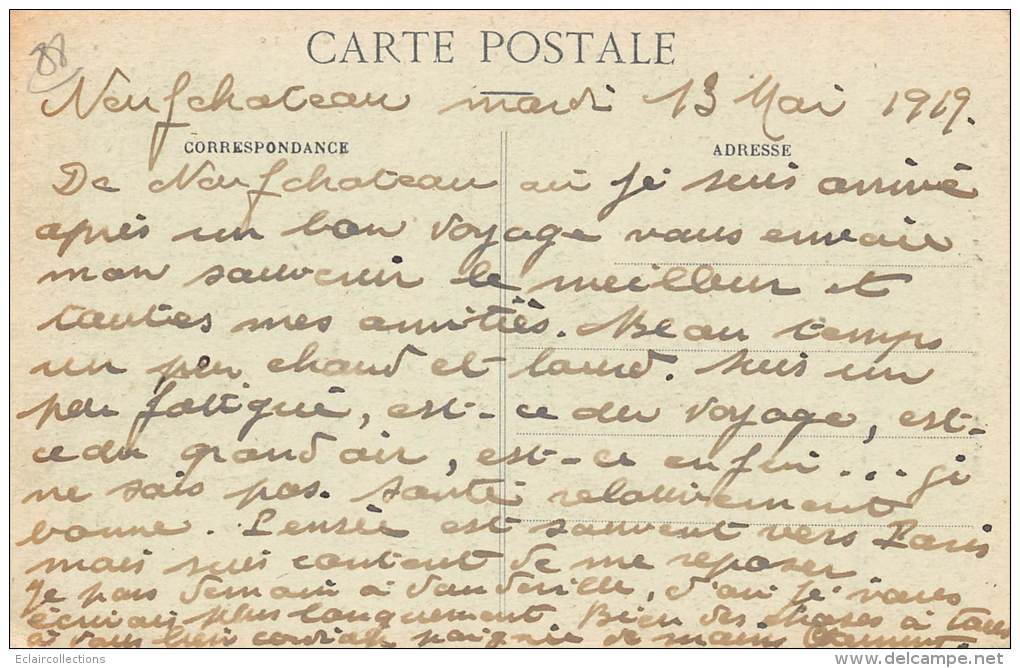 88
CARTE POSTALE
Neufchateau mardi 13 Mai 1919.
CORRESPONDANCE
ADRESSE
De Neufchateau où je suis arrivé
après un bon voyage vous envoie
mon souvenir le meilleur et
toutes mes amitiés. Beau temps
un peu chaud et lourd. Suis un
peu fatigué, est-ce du voyage, est-
ce du grand air, est-ce enfin... je
ne sais pas. Santé relativement
bonne. Pensée est souvent vers Paris
mais suis content de me reposer
Je pars demain à Vandeville, d'où je vous
écrirai plus longuement Bien des choses à tous
à vous bien cordiale poignée de mains
Eclaircollections